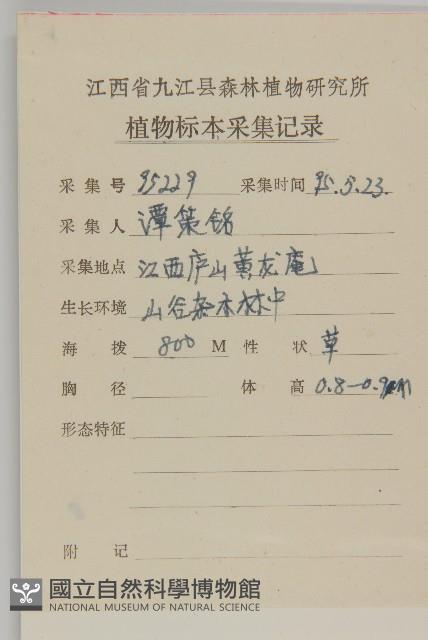 江西省九江县森林植物研究所
植物标本采集记录
采集号 95229 采集时间 95.5.23.
采集人 谭策铭
采集地点 江西庐山黄龙庵
生长环境 山谷杂木林中
海拨 800 M 性状 草
胸径 体高 0.8—0.9m
形态特征
附记
國立自然科學博物館
NATIONAL MUSEUM OF NATURAL SCIENCE